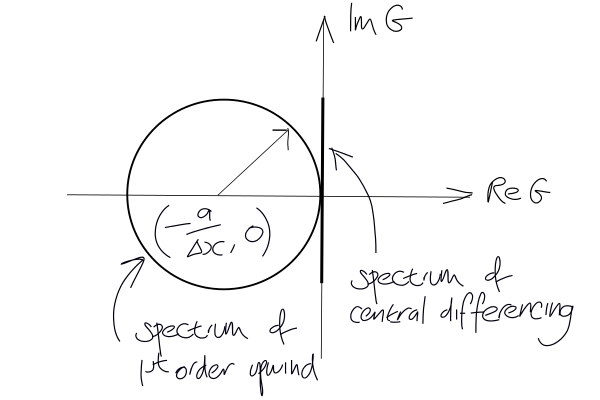 Im G
Re G
(-a/Δx, 0)
spectrum of
central differencing
spectrum of
1st order upwind